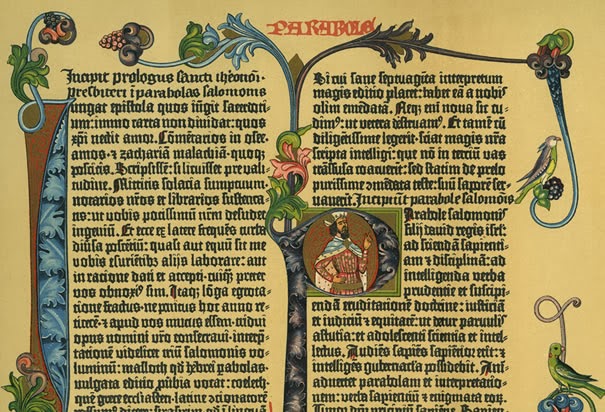 Incipit prologus sancti iheronimi
presbiteri i parabolas salomonis
iungat epistola quos iūgit sacerdoti-
um: immo carta non dividat: quos
xp̄i nectit amor. Cōmētarios in osee.
amos. ⁊ zachariā malachiā. quoq;
poscitis. Scripsissē: si licuisset pre vali-
tudine. Mittitis solacia sumptuum.
notarios nr̄os et librarios sustenta-
tis: ut vobis potissimū nr̄m desudet
ingeniū. Et ecce ex latere frequēs turba
diūsa poscētiū: quasi aut equū sit me
vobis esuriētib; aliis laborare: aut
in ratione dati et accepti. cuiq̄ preter
vos obnoxi⁹ sim. Itaq; lōga egrota-
tione fractus. ne penitus hoc anno re-
ticerē. ⁊ apud vos mutus essem. tridui
opus nomini vr̄o consecravi. interp̄-
tationē videlicet triū salomonis vo-
luminū: masloth qd̄ hebrei parabolas.
vulgata editio p̄ūbia vocat: coeleth.
que grece eccliasten. latine ɔcionatorē
PARABOLE
Si cui sane septuagīta interpretum
magis editio placet: habet eā a nobis
olim emēdatā. Neq; em̄ nova sic cu-
dim⁹: ut vetera destruam⁹. Et tamē cū
diligētissime legerit: sciat magis nr̄a
scripta intelligi: que nō in tertiū vas
trāsfusa coacuerīt: sed statim de prelo
purissime ɔmēdata teste: suū saporē ser-
vaverīt. Incipiunt parabole salomōis
Parabole salomonis
filij david regis isrl̄:
ad sciendā sapienti-
am ⁊ disciplinā: ad
intelligenda verba
prudentie et suscipi-
endā eruditationē doctrine: iusticiā
et iudiciū ⁊ equitatē: ut detur parvulis
astutia: et adolescenti scientia et intel-
lectus. Audiēs sapiēs sapiētior erit: ⁊
intelligēs gubernacla possidebit. An-
advertet parabolam et interpretatio-
nem: verba sapientiū ⁊ enigmata eoꝝ.